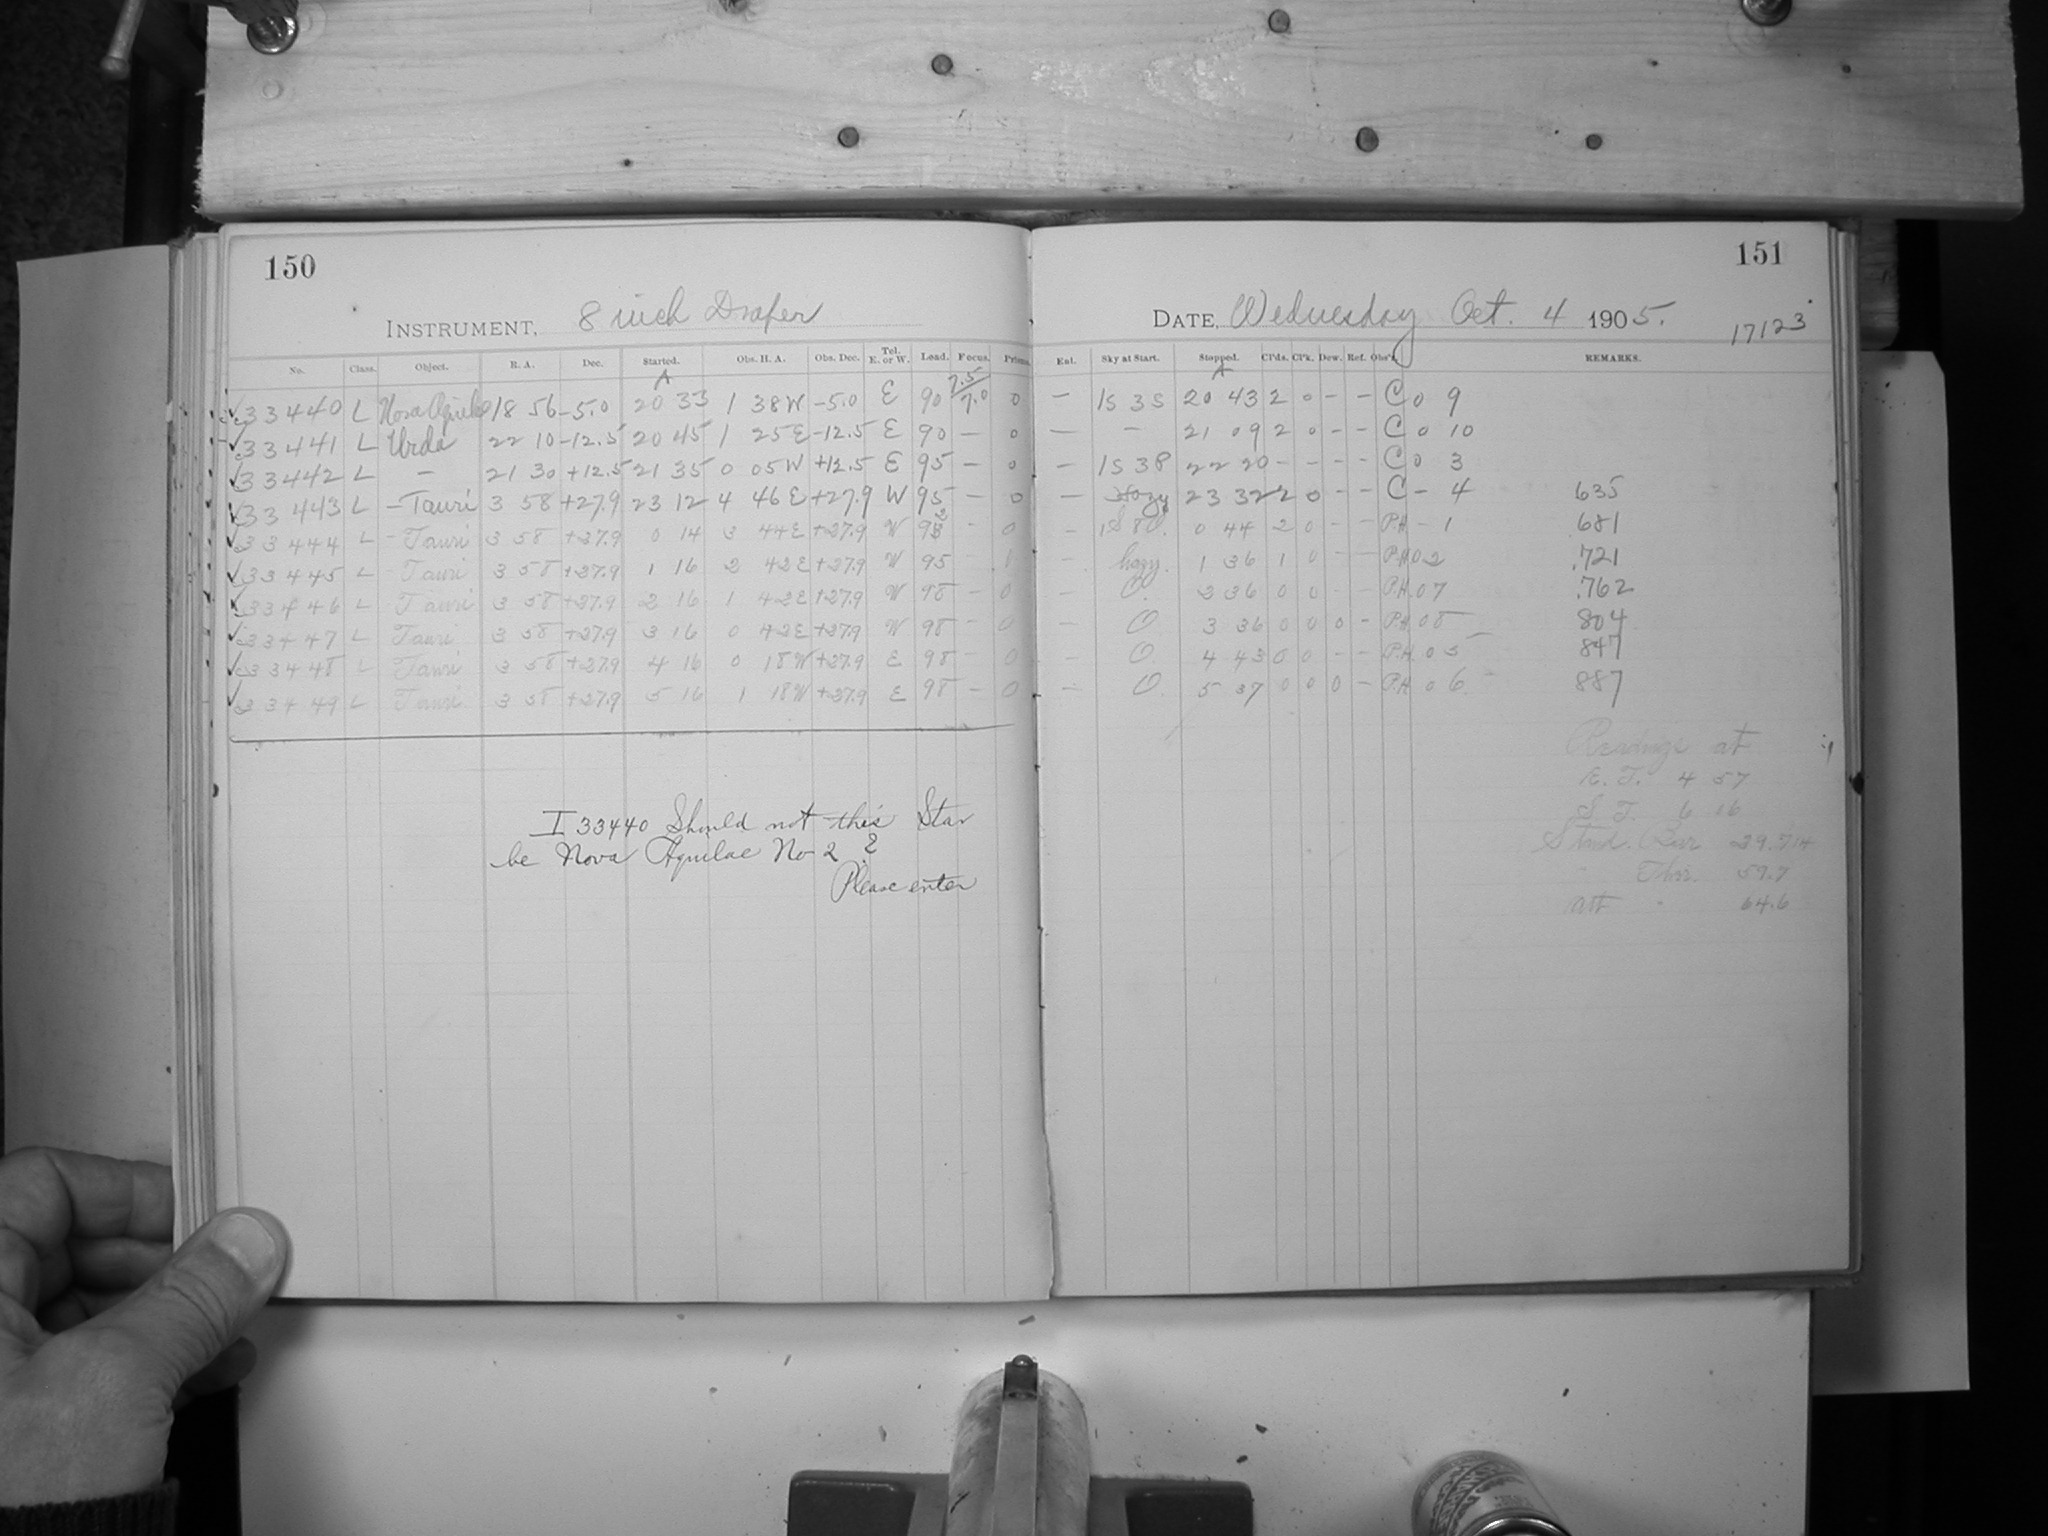 150
151
INSTRUMENT, 8 inch Draper
DATE, Wednesday Oct. 4 1905.
17123
No. Class. Object. R. A. Dec. Started. Obs. H. A. Obs. Dec. Tel. E. or W. Lead. Focus. Prisms. Enl. Sky at Start. Stopped. Cl'ds. Cl'k. Dew. Ref. Obs'r. REMARKS.
A 7.5 A
✓33440 L Nova Aquilae 18 56 -5.0 20 33 1 38W -5.0 E 90 7.0 0 - 1S 3S 20 43 2 0 - - C 0 9
✓33441 L Urda 22 10 -12.5 20 45 1 25E -12.5 E 90 - 0 - - 21 09 2 0 - - C 0 10
✓33442 L - 21 30 +12.5 21 35 0 05W +12.5 E 95 - 0 - 1S 3P 22 20 - - - - C 0 3
✓33443 L -Tauri 3 58 +27.9 23 12 4 46E +27.9 W 95 - 0 - Hazy 23 32 2 0 - - C - 4 635
✓33444 L -Tauri 3 58 +27.9 0 14 3 44E +27.9 W - 0 - 0 44 2 0 - - P.H. - 1 681
✓33445 L -Tauri 3 58 +27.9 1 16 2 42E +27.9 W 95 - 1 - hazy. 1 36 1 0 - - P.H. 0 2 .721
✓33446 L Tauri 3 58 +27.9 2 16 1 42E +27.9 W 98 - 0 - 0. 2 36 0 0 - - P.H. 0 7 .762
✓33447 L Tauri 3 58 +27.9 3 16 0 42E +27.9 W 98 - 0 - 0 3 36 0 0 0 - P.H. 0 8 804
✓33448 L Tauri 3 58 +27.9 4 16 0 18W +27.9 E 98 - 0 - 0. 4 43 0 0 - - P.H. 0 5 847
✓33449 L Tauri 3 58 +27.9 5 16 1 18W +27.9 E 98 - 0 - 0. 5 37 0 0 0 - P.H. 0 6 887
I 33440 Should not this Star
be Nova Aquilae No 2 ?
Please enter
Readings at
E. T. 4 57
S T. 6 16
Stand. Bar 29.714
Ther. 57.7
Att " 64.6